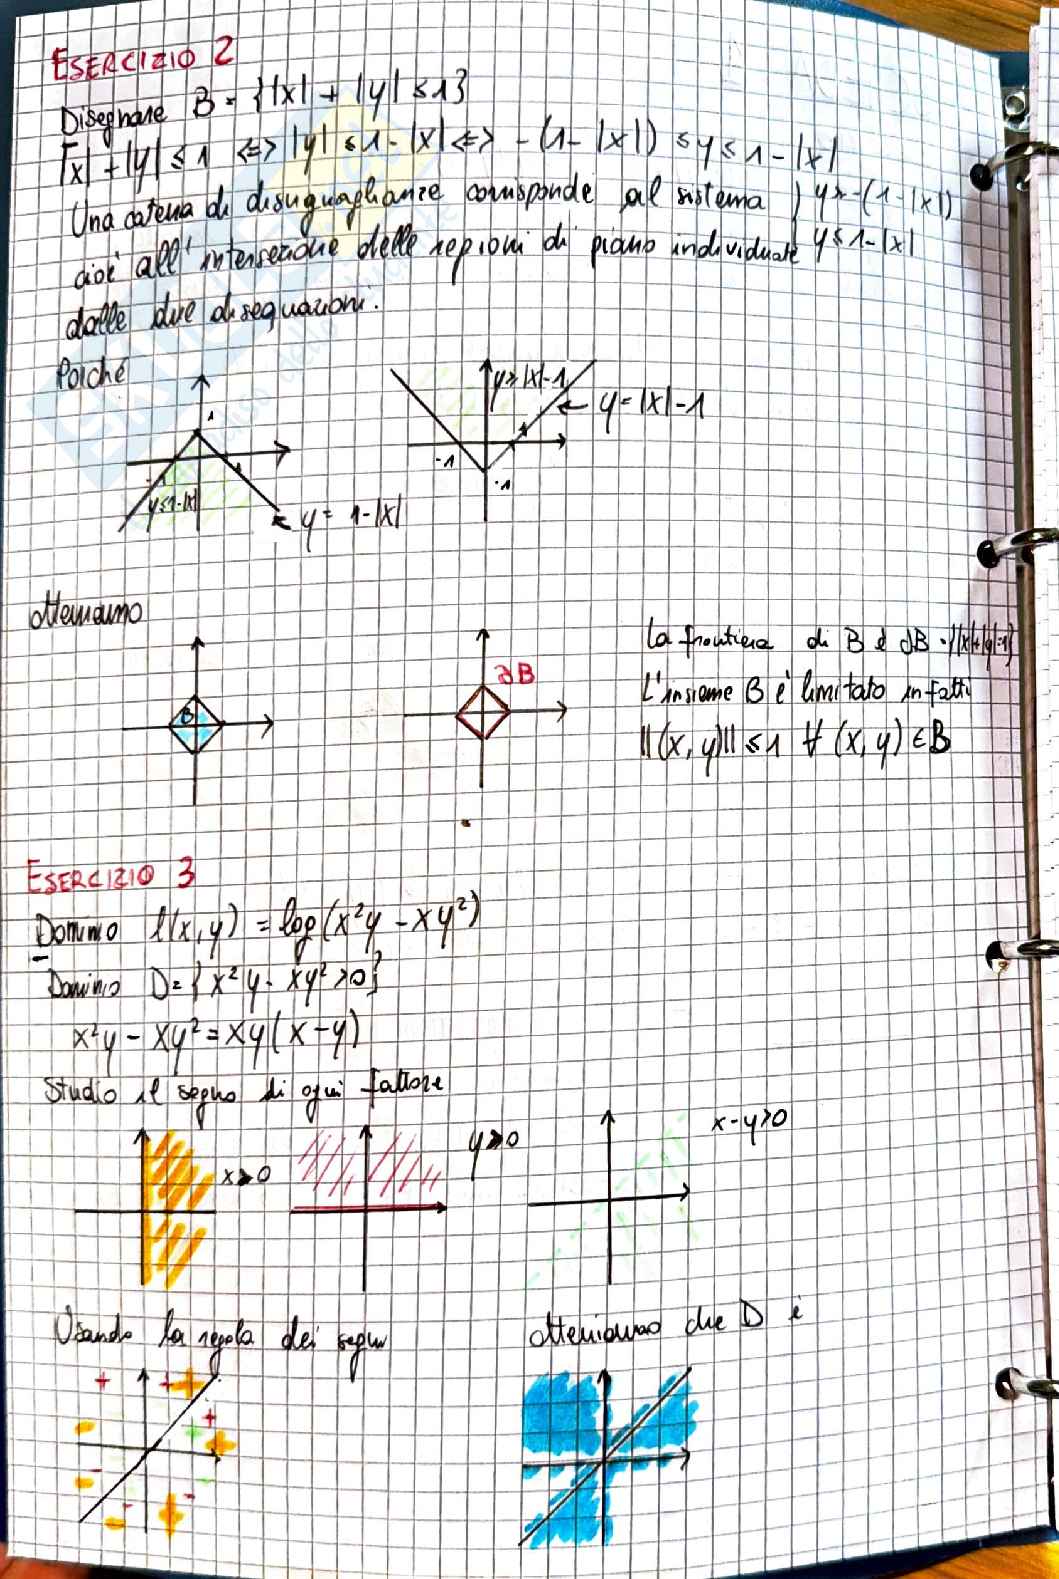 ESERCIZIO 2
Disegnare B = {|x| + |y| ≤ 1}
|x| + |y| ≤ 1 <=> |y| ≤ 1 - |x| <=> - (1 - |x|) ≤ y ≤ 1 - |x|
Una catena di disuguaglianze corrisponde al sistema } y ≥ -(1-|x|)
cioè all'intersezione delle regioni di piano individuate } y ≤ 1-|x|
dalle due disequazioni.
Poiché
1
y ≤ 1-|x|
y = 1-|x|
y ≥ |x|-1
y = |x|-1
-1
1
-1
otteniamo
B
∂B
La frontiera di B è ∂B = {|x|+|y|=1}
L'insieme B è limitato infatti
||(x, y)|| ≤ 1 ∀ (x, y) ∈ B
ESERCIZIO 3
Dominio f(x, y) = log(x²y - xy²)
Dominio D = { x²y - xy² > 0 }
x²y - xy² = xy(x - y)
Studio il segno di ogni fattore
x > 0
y > 0
x - y > 0
Usando la regola dei segni
otteniamo che D è